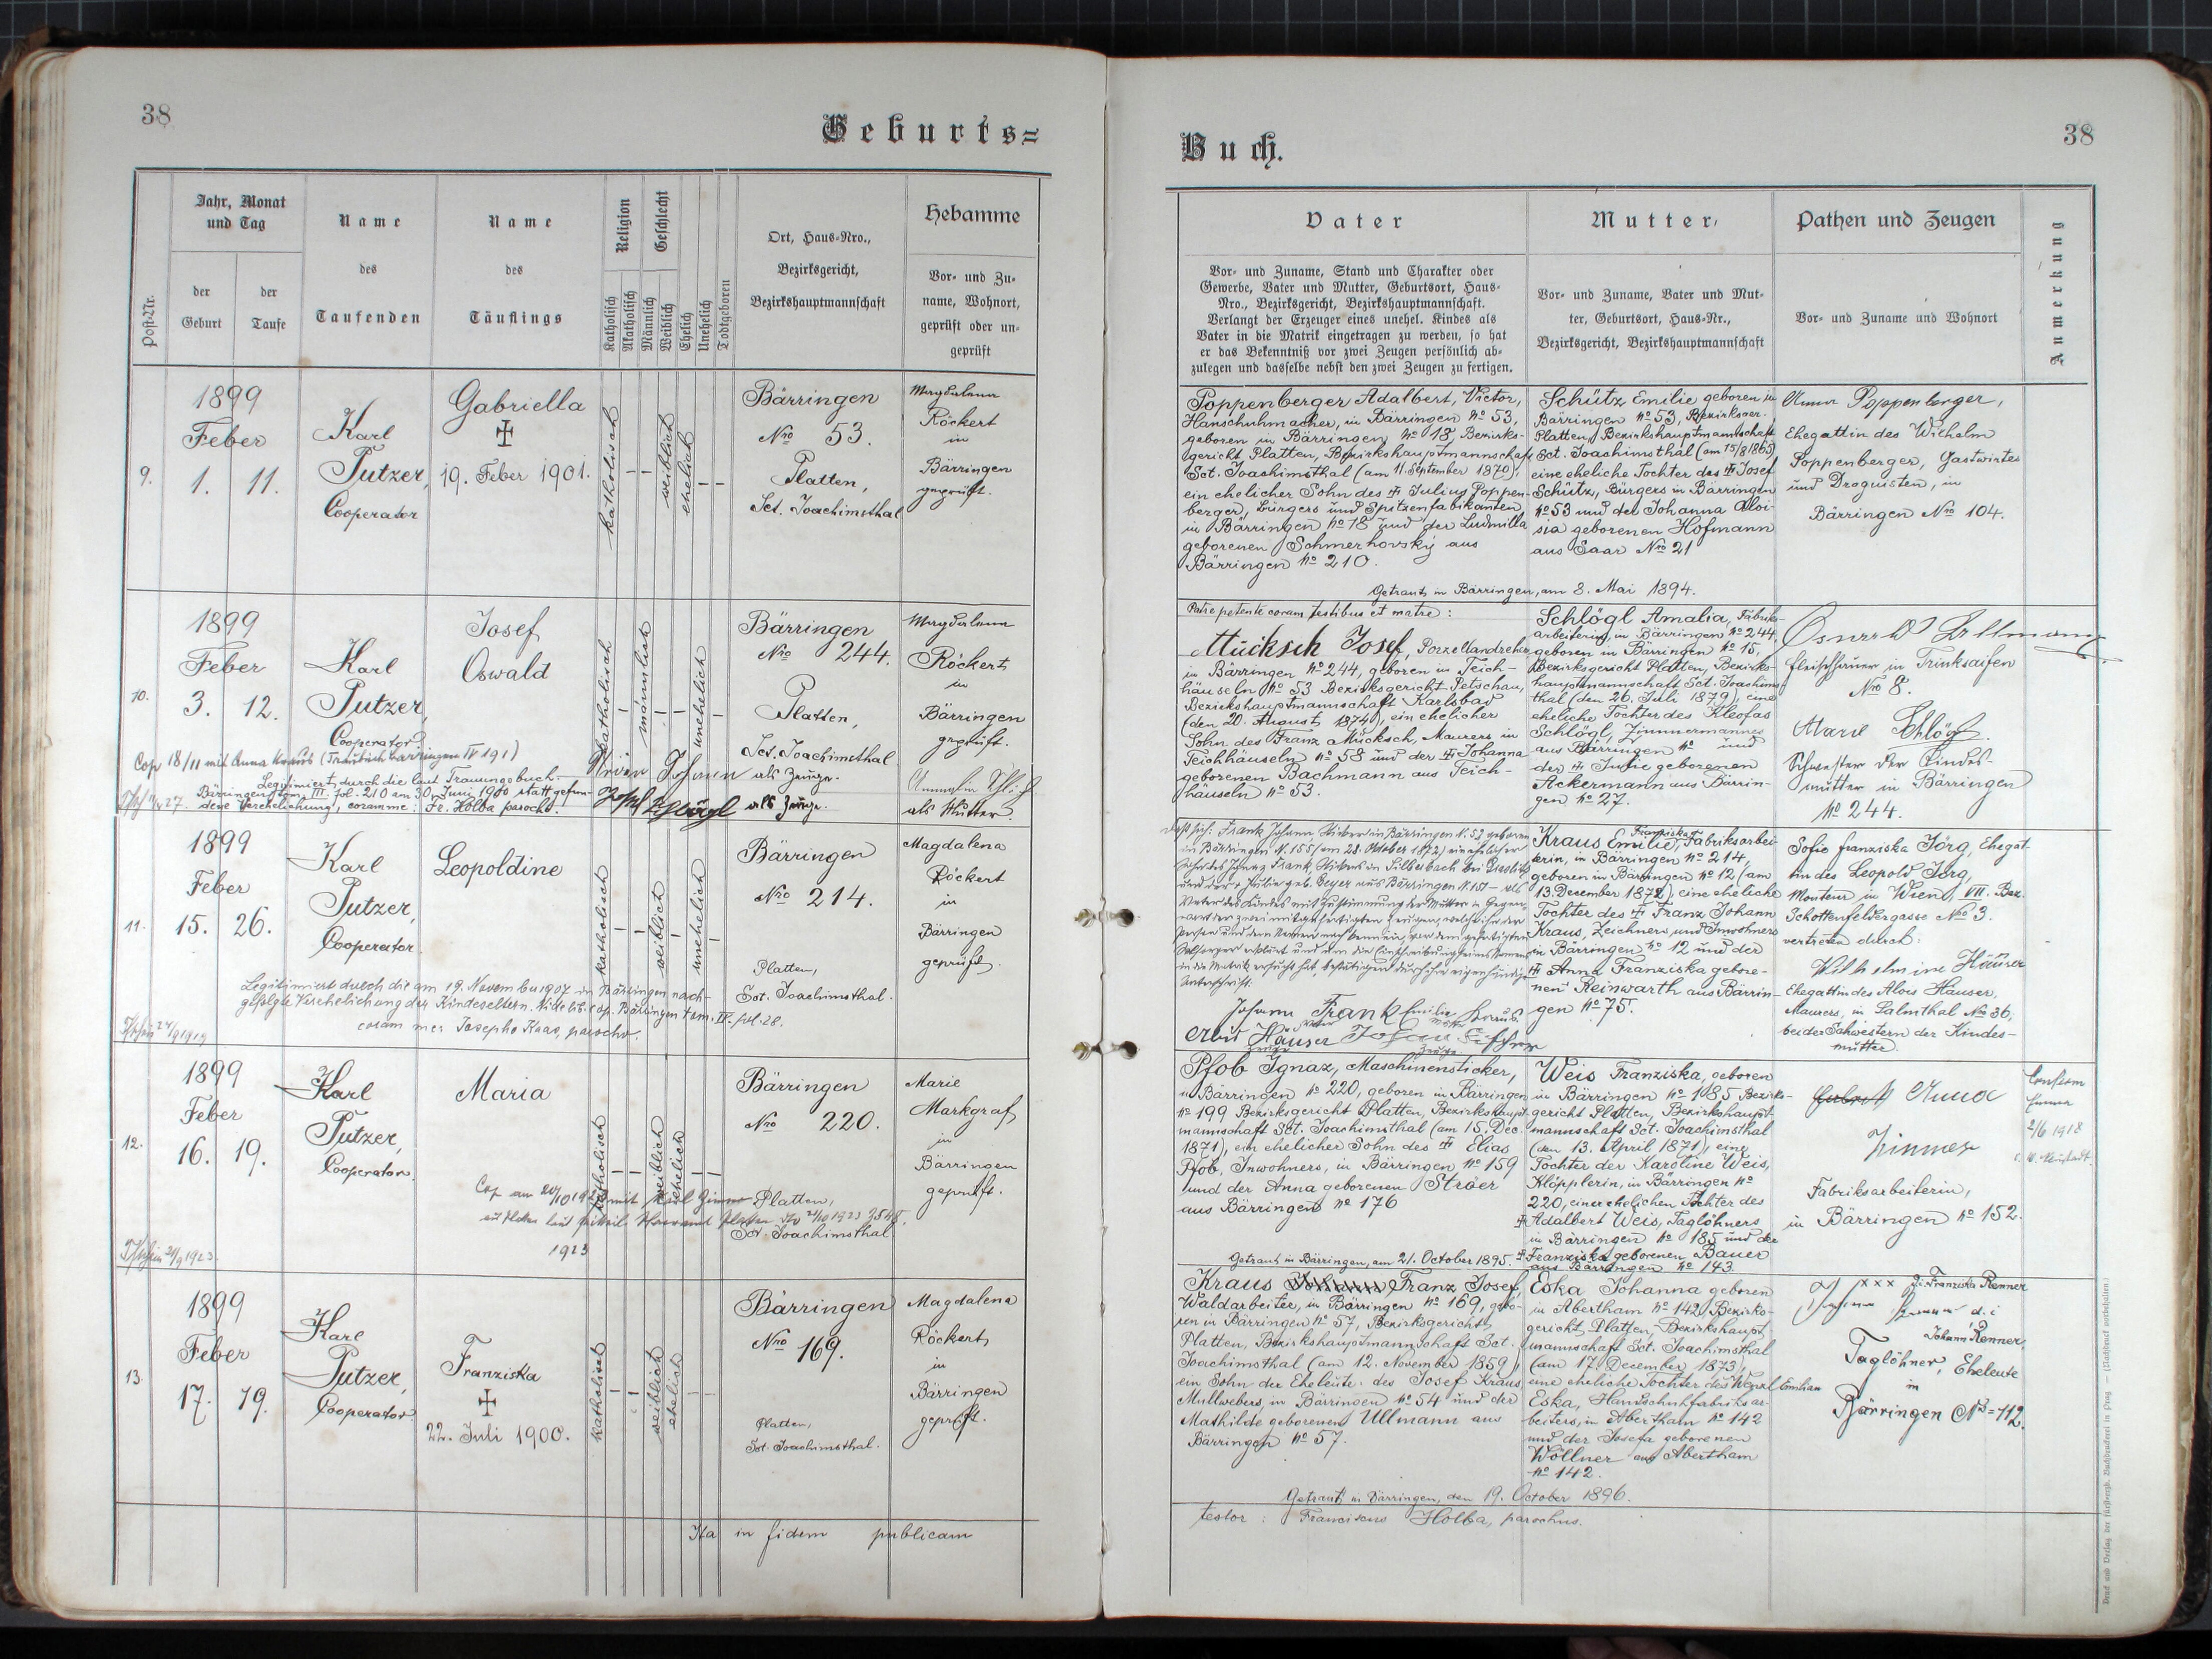 38
Geburts=
Post-Nr.
Jahr, Monat
und Tag
der
Geburt
der
Taufe
Name
des
Taufenden
Name
des
Täuflings
Religion
Katholisch
Akatholisch
Geschlecht
Männlich
Weiblich
Ehelich
Unehelich
Todtgeboren
Ort, Haus=Nro.,
Bezirksgericht,
Bezirkshauptmannschaft
Hebamme
Vor= und Zu=
name, Wohnort,
geprüft oder un=
geprüft
9.
1899
Feber
1. 11.
Karl
Putzer,
Cooperator
Gabriella
✠
19. Feber 1901.
katholisch
weiblich
ehelich
Bärringen
Nro 53.
Platten,
Sct. Joachimsthal
Magdalena
Röckert
in
Bärringen
geprüft.
10.
1899
Feber
3. 12.
Karl
Putzer,
Cooperator
Josef
Oswald
katholisch
männlich
unehelich
Bärringen
Nro 244.
Platten,
Sct. Joachimsthal
Magdalena
Röckert
in
Bärringen
geprüft.
Cop 18/11 mit Anna Kraus
Legitimiert durch die laut Trauungsbuch
Bärringen tom. III. fol. 210 am 30. Juni 1900 statt gefun-
dene Verehelichung, coram me: Fr. Holba parocho.
Johann als Zeuge.
Josef Schlögl als Zeuge.
als Mutter.
11.
1899
Feber
15. 26.
Karl
Putzer,
Cooperator.
Leopoldine
katholisch
weiblich
unehelich
Bärringen
Nro 214.
Platten,
Sct. Joachimsthal.
Magdalena
Röckert
in
Bärringen
geprüft.
Legitimiert durch die am 19. November 1907 in Bärringen nach-
gefolgte Verehelichung der Kindeseltern. Vide lib. cop. Bärringen tom. IV. fol. 28.
coram me: Josepho Kraus, parocho.
12.
1899
Feber
16. 19.
Karl
Putzer,
Cooperator.
Maria
katholisch
weiblich
ehelich
Bärringen
Nro 220.
Platten,
Sct. Joachimsthal
Marie
Markgraf
in
Bärringen
geprüft.
1923
13.
1899
Feber
17. 19.
Karl
Putzer,
Cooperator
Franziska
✠
22. Juli 1900.
katholisch
weiblich
ehelich
Bärringen
Nro 169.
Platten,
Sct. Joachimsthal.
Magdalena
Röckert
in
Bärringen
geprüft.
Ita in fidem publicam
Buch.
38
Vater
Vor= und Zuname, Stand und Charakter oder
Gewerbe, Vater und Mutter, Geburtsort, Haus=
Nro., Bezirksgericht, Bezirkshauptmannschaft.
Verlangt der Erzeuger eines unehel. Kindes als
Vater in die Matrik eingetragen zu werden, so hat
er das Bekenntniß vor zwei Zeugen persönlich ab=
zulegen und dasselbe nebst den zwei Zeugen zu fertigen.
Mutter
Vor= und Zuname, Vater und Mut=
ter, Geburtsort, Haus=Nr.,
Bezirksgericht, Bezirkshauptmannschaft
Pathen und Zeugen
Vor= und Zuname und Wohnort
Anmerkung
Poppenberger Adalbert, Victor,
Hanschuhmacher, in Bärringen No 53,
geboren in Bärringen No 18, Bezirks-
gericht Platten, Bezirkshauptmannschaft
Sct. Joachimsthal (am 11. September 1870),
ein ehelicher Sohn des ✠ Julius Poppen-
berger, Bürgers und Spitzenfabikanten
in Bärringen No 18 und der Ludmilla
geborenen Schmerhovský aus
Bärringen No 210.
Schütz Emilie geboren in
Bärringen No 53, Bezirksger.
Platten, Bezirkshauptmannschaft
Sct. Joachimsthal (am 15/8 1865)
eine eheliche Tochter des ✠ Josef
Schütz, Bürgers in Bärringen
No 53 und der Johanna Aloi-
sia geborenen Hofmann
aus Saar Nro 21
Anna Poppenberger,
Ehegattin des Wilhelm
Poppenberger, Gastwirtes
und Droguisten, in
Bärringen Nro 104.
Getraut in Bärringen, am 8. Mai 1894.
Patre petente coram testibus et matre:
Mücksch Josef, Porzellandreher
in Bärringen No 244, geboren in Teich-
häuseln No 53 Bezirksgericht Petschau,
Bezirkshauptmannschaft Karlsbad
(den 20. August 1874), ein ehelicher
Sohn des Franz Mücksch, Maurers in
Teichhäuseln No 58 und der ✠ Johanna
geborenen Bachmann aus Teich-
häuseln No 53.
Schlögl Amalia, Fabriks-
arbeiterin, in Bärringen No 244,
geboren in Bärringen No 15,
Bezirksgericht Platten, Bezirks-
hauptmannschaft Sct. Joachims-
thal (den 26. Juli 1879), eine
eheliche Tochter des Kleofas
Schlögl, Zimmermannes
aus Bärringen No und
der ✠ Julie geborenen
Ackermann aus Bärrin-
gen No 27.
Fleischhauer in Trinksaifen
Nro 8.
Marie Schlögl
Schwester der Kindes-
mutter in Bärringen
No 244.
Johann Frank
Vater
Emilie Kraus
Mutter
Häuser
Zeuge
Johann Fischer
Zeuge.
Kraus Emilie, Franziska, Fabriksarbei-
terin, in Bärringen No 214,
geboren in Bärringen No 12 (am
13. December 1872), eine eheliche
Tochter des ✠ Franz Johann
Kraus, Zeichners und Inwohners
in Bärringen No 12 und der
✠ Anna Franziska gebore-
nen Reinwarth aus Bärrin-
gen No 75.
Sofie Franziska Jörg, Ehegat-
tin des Leopold Jörg,
Monteur in Wien, VII. Bez.
Schottenfeldergasse Nro 3.
vertreten durch:
Wilhelmine Häuser
Ehegattin des Alois Häuser,
Maurers, in Salmthal Nro 36,
beide Schwestern der Kindes-
mutter.
Pfob Ignaz, Maschinensticker,
in Bärringen No 220, geboren in Bärringen
No 199 Bezirksgericht Platten, Bezirkshaupt-
mannschaft Sct. Joachimsthal (am 15. Dec.
1871), ein ehelicher Sohn des ✠ Elias
Pfob, Inwohners, in Bärringen No 159
und der Anna geborenen Ströer
aus Bärringen No 176
Weis Franziska, geboren
in Bärringen No 185 Bezirks-
gericht Platten, Bezirkshaupt-
mannschaft Sct. Joachimsthal
(den 13. April 1871), eine
Tochter der Karoline Weis,
Klöpplerin, in Bärringen No
220, einer ehelichen Tochter des
✠ Adalbert Weis, Taglöhners
in Bärringen No 185 und der
✠ Franziska geborenen Bauer
aus Bärringen No 143.
Anna
Zimmer
Fabriksarbeiterin,
in Bärringen No 152.
2/6 1918
Getraut in Bärringen, am 21. October 1895.
Kraus Franz Josef,
Waldarbeiter, in Bärringen No 169, gebo-
ren in Bärringen No 57, Bezirksgericht
Platten, Bezirkshauptmannschaft Sct.
Joachimsthal (am 12. November 1859),
ein Sohn der Eheleute: des Josef Kraus,
Mullwebers, in Bärringen No 54 und der
Mathilde geborenen Ullmann aus
Bärringen No 57.
Eska Johanna geboren
in Abertham No 142, Bezirks-
gericht Platten, Bezirkshaupt-
mannschaft Sct. Joachimsthal
(am 17. December 1873,
eine eheliche Tochter des Wenzl Emilian
Eska, Handschuhfabriksar-
beiters, in Abertham No 142
und der Josefa geborenen
Wöllner aus Abertham
No 142.
xxx Franziska Renner
d. i.
Johann Renner,
Taglöhner, Eheleute
in
Bärringen No 112.
Getraut in Bärringen, den 19. October 1896.
testor: Franciscus Holba, parochus.
Druck und Verlag der fürsterzb. Buchdruckerei in Prag. — (Nachdruck vorbehalten.)